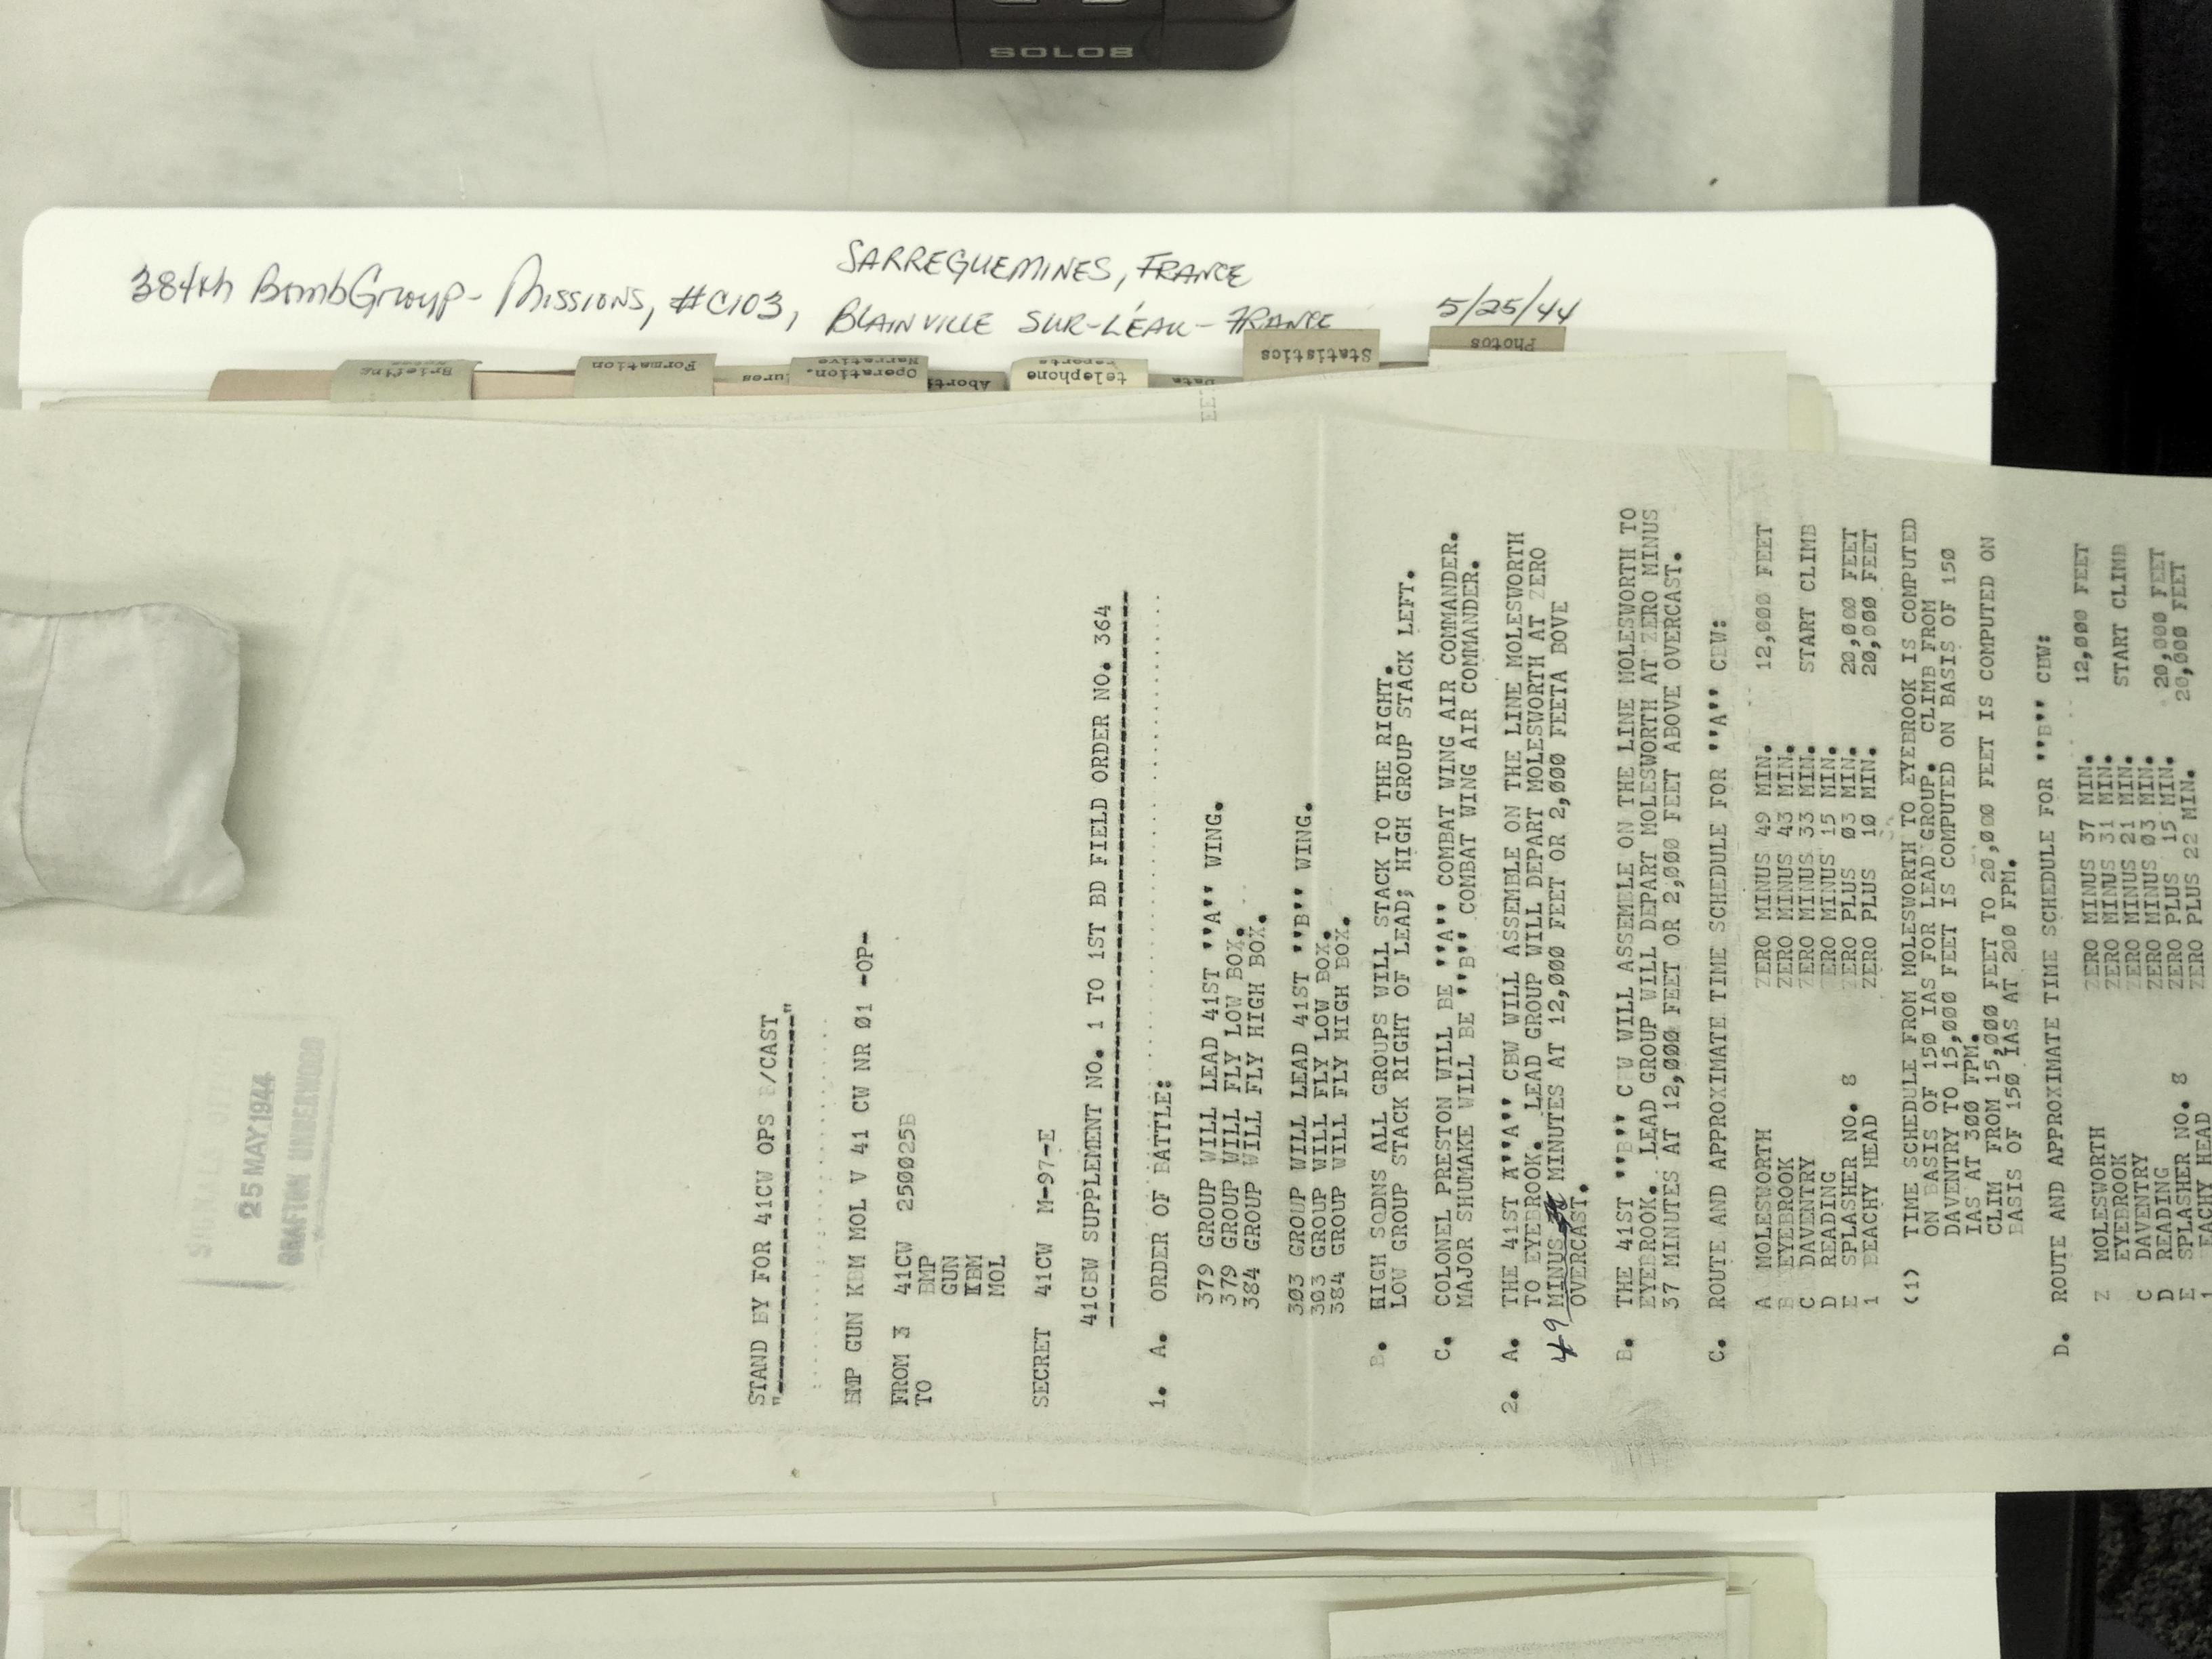 SOLO8
SARREGUEMINES, FRANCE
384th BombGroup - Missions, #C103, BLAINVILLE SUR-L'EAU - FRANCE 5/25/44
Briefing
Formation
Operation.
Narrative
Aborti
telephone
reports
Data
Statistics
Photos
25 MAY 1944
GRAFTON UNDERWOOD
STAND BY FOR 41CW OPS B/CAST
"---------------"
BMP GUN KBM MOL V 41 CW NR Ø1 -OP-
FROM 3 41CW 25ØØ25B
TO BMP
GUN
KBM
MOL
SECRET 41CW M-97-E
41CBW SUPPLEMENT NO. 1 TO 1ST BD FIELD ORDER NO. 364
1. A. ORDER OF BATTLE:
379 GROUP WILL LEAD 41ST ''A'' WING.
379 GROUP WILL FLY LOW BOX.
384 GROUP WILL FLY HIGH BOX.
3Ø3 GROUP WILL LEAD 41ST ''B'' WING.
3Ø3 GROUP WILL FLY LOW BOX.
384 GROUP WILL FLY HIGH BOX.
B. HIGH SQDNS ALL GROUPS WILL STACK TO THE RIGHT.
LOW GROUP STACK RIGHT OF LEAD; HIGH GROUP STACK LEFT.
C. COLONEL PRESTON WILL BE ''A'' COMBAT WING AIR COMMANDER.
MAJOR SHUMAKE WILL BE ''B'' COMBAT WING AIR COMMANDER.
2. A. THE 41ST A''A'' CBW WILL ASSEMBLE ON THE LINE MOLESWORTH
TO EYEBROOK. LEAD GROUP WILL DEPART MOLESWORTH AT ZERO
49 MINUS MINUTES AT 12,ØØØ FEET OR 2,ØØØ FEETA BOVE
OVERCAST.
B. THE 41ST ''B'' C W WILL ASSEMBLE ON THE LINE MOLESWORTH TO
EYEBROOK. LEAD GROUP WILL DEPART MOLESWORTH AT ZERO MINUS
37 MINUTES AT 12,ØØØ FEET OR 2,ØØØ FEET ABOVE OVERCAST.
C. ROUTE AND APPROXIMATE TIME SCHEDULE FOR ''A'' CBW:
A MOLESWORTH ZERO MINUS 49 MIN. 12,ØØØ FEET
B EYEBROOK ZERO MINUS 43 MIN.
C DAVENTRY ZERO MINUS 33 MIN. START CLIMB
D READING ZERO MINUS 15 MIN.
E SPLASHER NO. 8 ZERO PLUS Ø3 MIN. 20,ØØØ FEET
1 BEACHY HEAD ZERO PLUS 10 MIN. 20,ØØØ FEET
(1) TIME SCHEDULE FROM MOLESWORTH TO EYEBROOK IS COMPUTED
ON BASIS OF 150 IAS FOR LEAD GROUP. CLIMB FROM
DAVENTRY TO 15,ØØØ FEET IS COMPUTED ON BASIS OF 15Ø
IAS AT 3ØØ FPM.
CLIM FROM 15,ØØØ FEET TO 2Ø,ØØØ FEET IS COMPUTED ON
BASIS OF 15Ø IAS AT 2ØØ FPM.
D. ROUTE AND APPROXIMATE TIME SCHEDULE FOR ''B'' CBW:
Z MOLESWORTH ZERO MINUS 37 MIN. 12,ØØØ FEET
EYEBROOK ZERO MINUS 31 MIN.
C DAVENTRY ZERO MINUS 21 MIN. START CLIMB
D READING ZERO MINUS Ø3 MIN.
E SPLASHER NO. 8 ZERO PLUS 15 MIN. 2Ø,ØØØ FEET
1 EACHY HEAD ZERO PLUS 22 MIN. 2Ø,ØØØ FEET